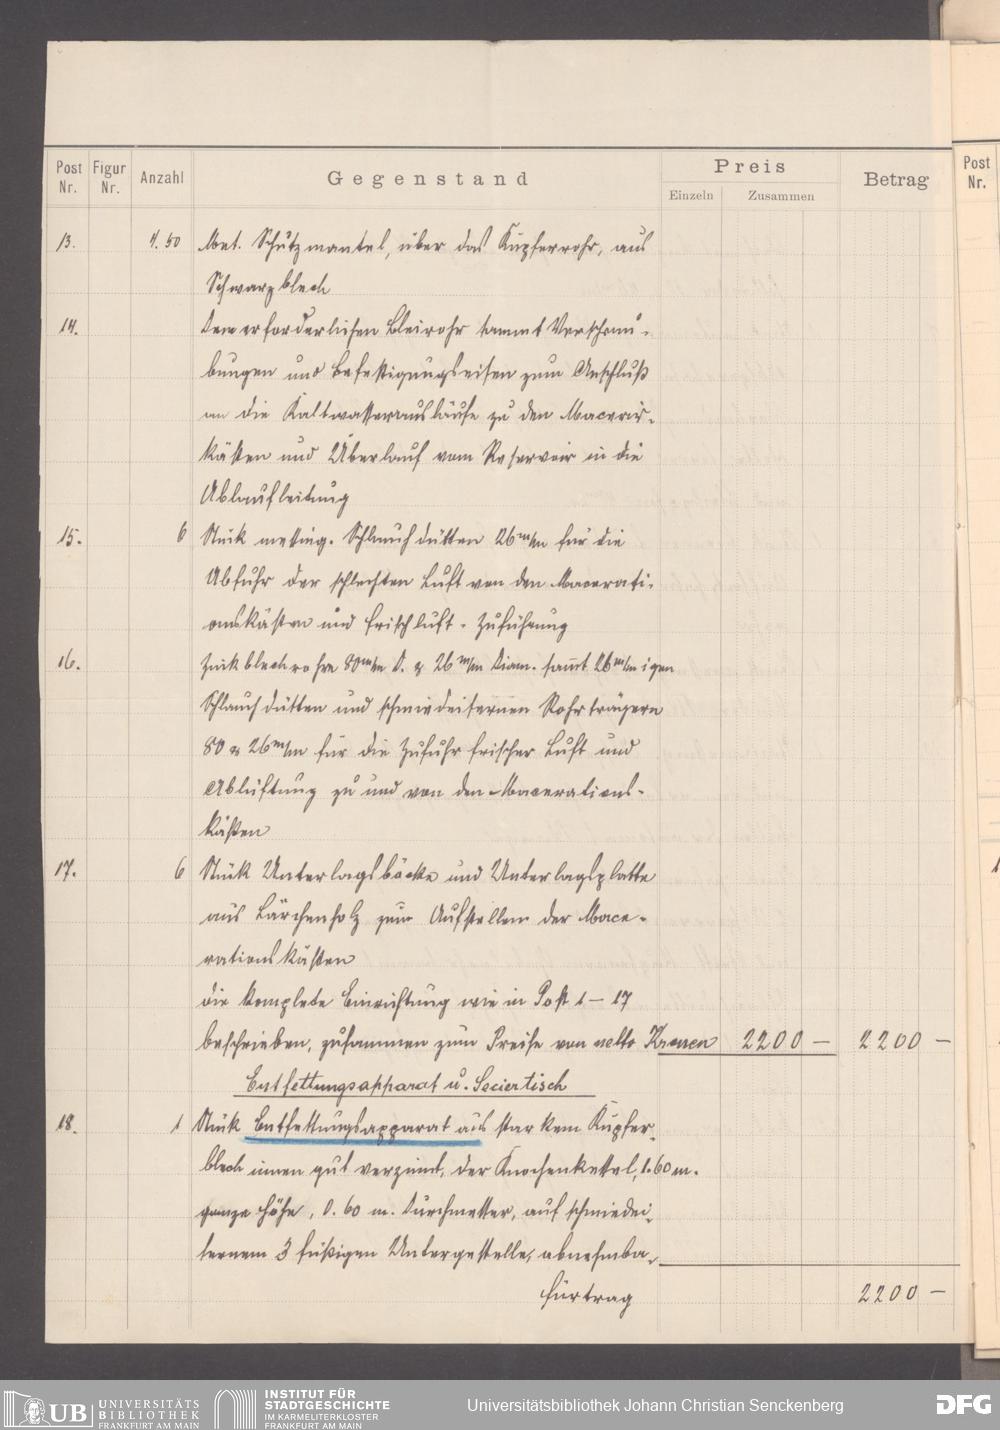 Post Nr. Figur Nr. Anzahl Gegenstand Preis Einzeln Zusammen Betrag
Post Nr.
13. 4.50 Met. Schutzmantel, über das Kupferrohr, aus
Schwarzblech
14. Dem erforderlichen Bleirohr sammt Verschrau-
bungen und Befestigungseisen zum Anschluß
an die Kaltwasserausläufe zu den Macerir-
kästen und Überlauf vom Reservoir in die
Ablaufleitung
15. 6 Stück messing. Schlauchdütten 26 m/m für die
Abfuhr der schlechten Luft von den Macerati-
onskästen und Frischluft-Zuführung
16. Zinkblechrohre 80 m/m D. & 26 m/m Diam. sammt 26 m/m igen
Schlauchdütten und schmiedeisernen Rohrträgern
80 & 26 m/m für die Zufuhr frischer Luft und
Ablüftung zu und von den Macerations-
kästen
17. 6 Stück Unterlagsböcke und Unterlagsplatte
aus Lärchenholz zum Aufstellen der Mace-
rationskästen
die komplete Einrichtung wie in Post 1–17
beschrieben, zusammen zum Preise von netto Kronen 2200 – 2200 –
Entfettungsapparat u. Seciertisch
18. 1 Stück Entfettungsapparat aus starkem Kupfer-
blech innen gut verzinnt, der Knochenkessel, 1.60 m.
ganze Höhe, 0.60 m. Durchmesser, auf schmiedei-
sernem 3 füßigen Untergestelle, abnehmba-
Fürtrag 2200 –
UB UNIVERSITÄTS BIBLIOTHEK FRANKFURT AM MAIN
INSTITUT FÜR STADTGESCHICHTE IM KARMELITERKLOSTER FRANKFURT AM MAIN
Universitätsbibliothek Johann Christian Senckenberg
DFG